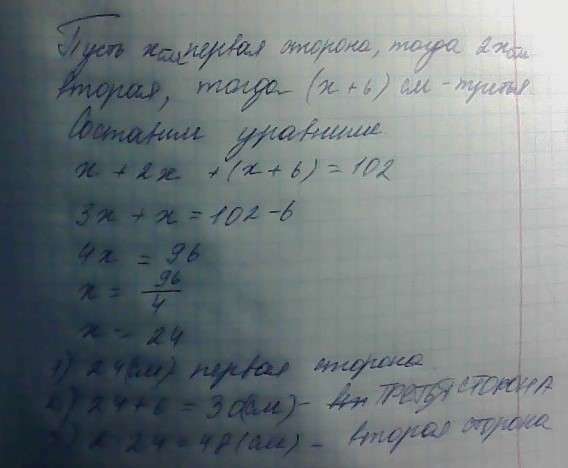 Пусть x см первая сторона, тогда 2x см
вторая, тогда (x + 6) см - третья
Составим уравнение
x + 2x + (x + 6) = 102
3x + x = 102 - 6
4x = 96
x = 96/4
x = 24
1) 24(см) первая сторона
2) 24 + 6 = 30(см) - ТРЕТЬЯ СТОРОНА
3) 2 · 24 = 48(см) - вторая сторона